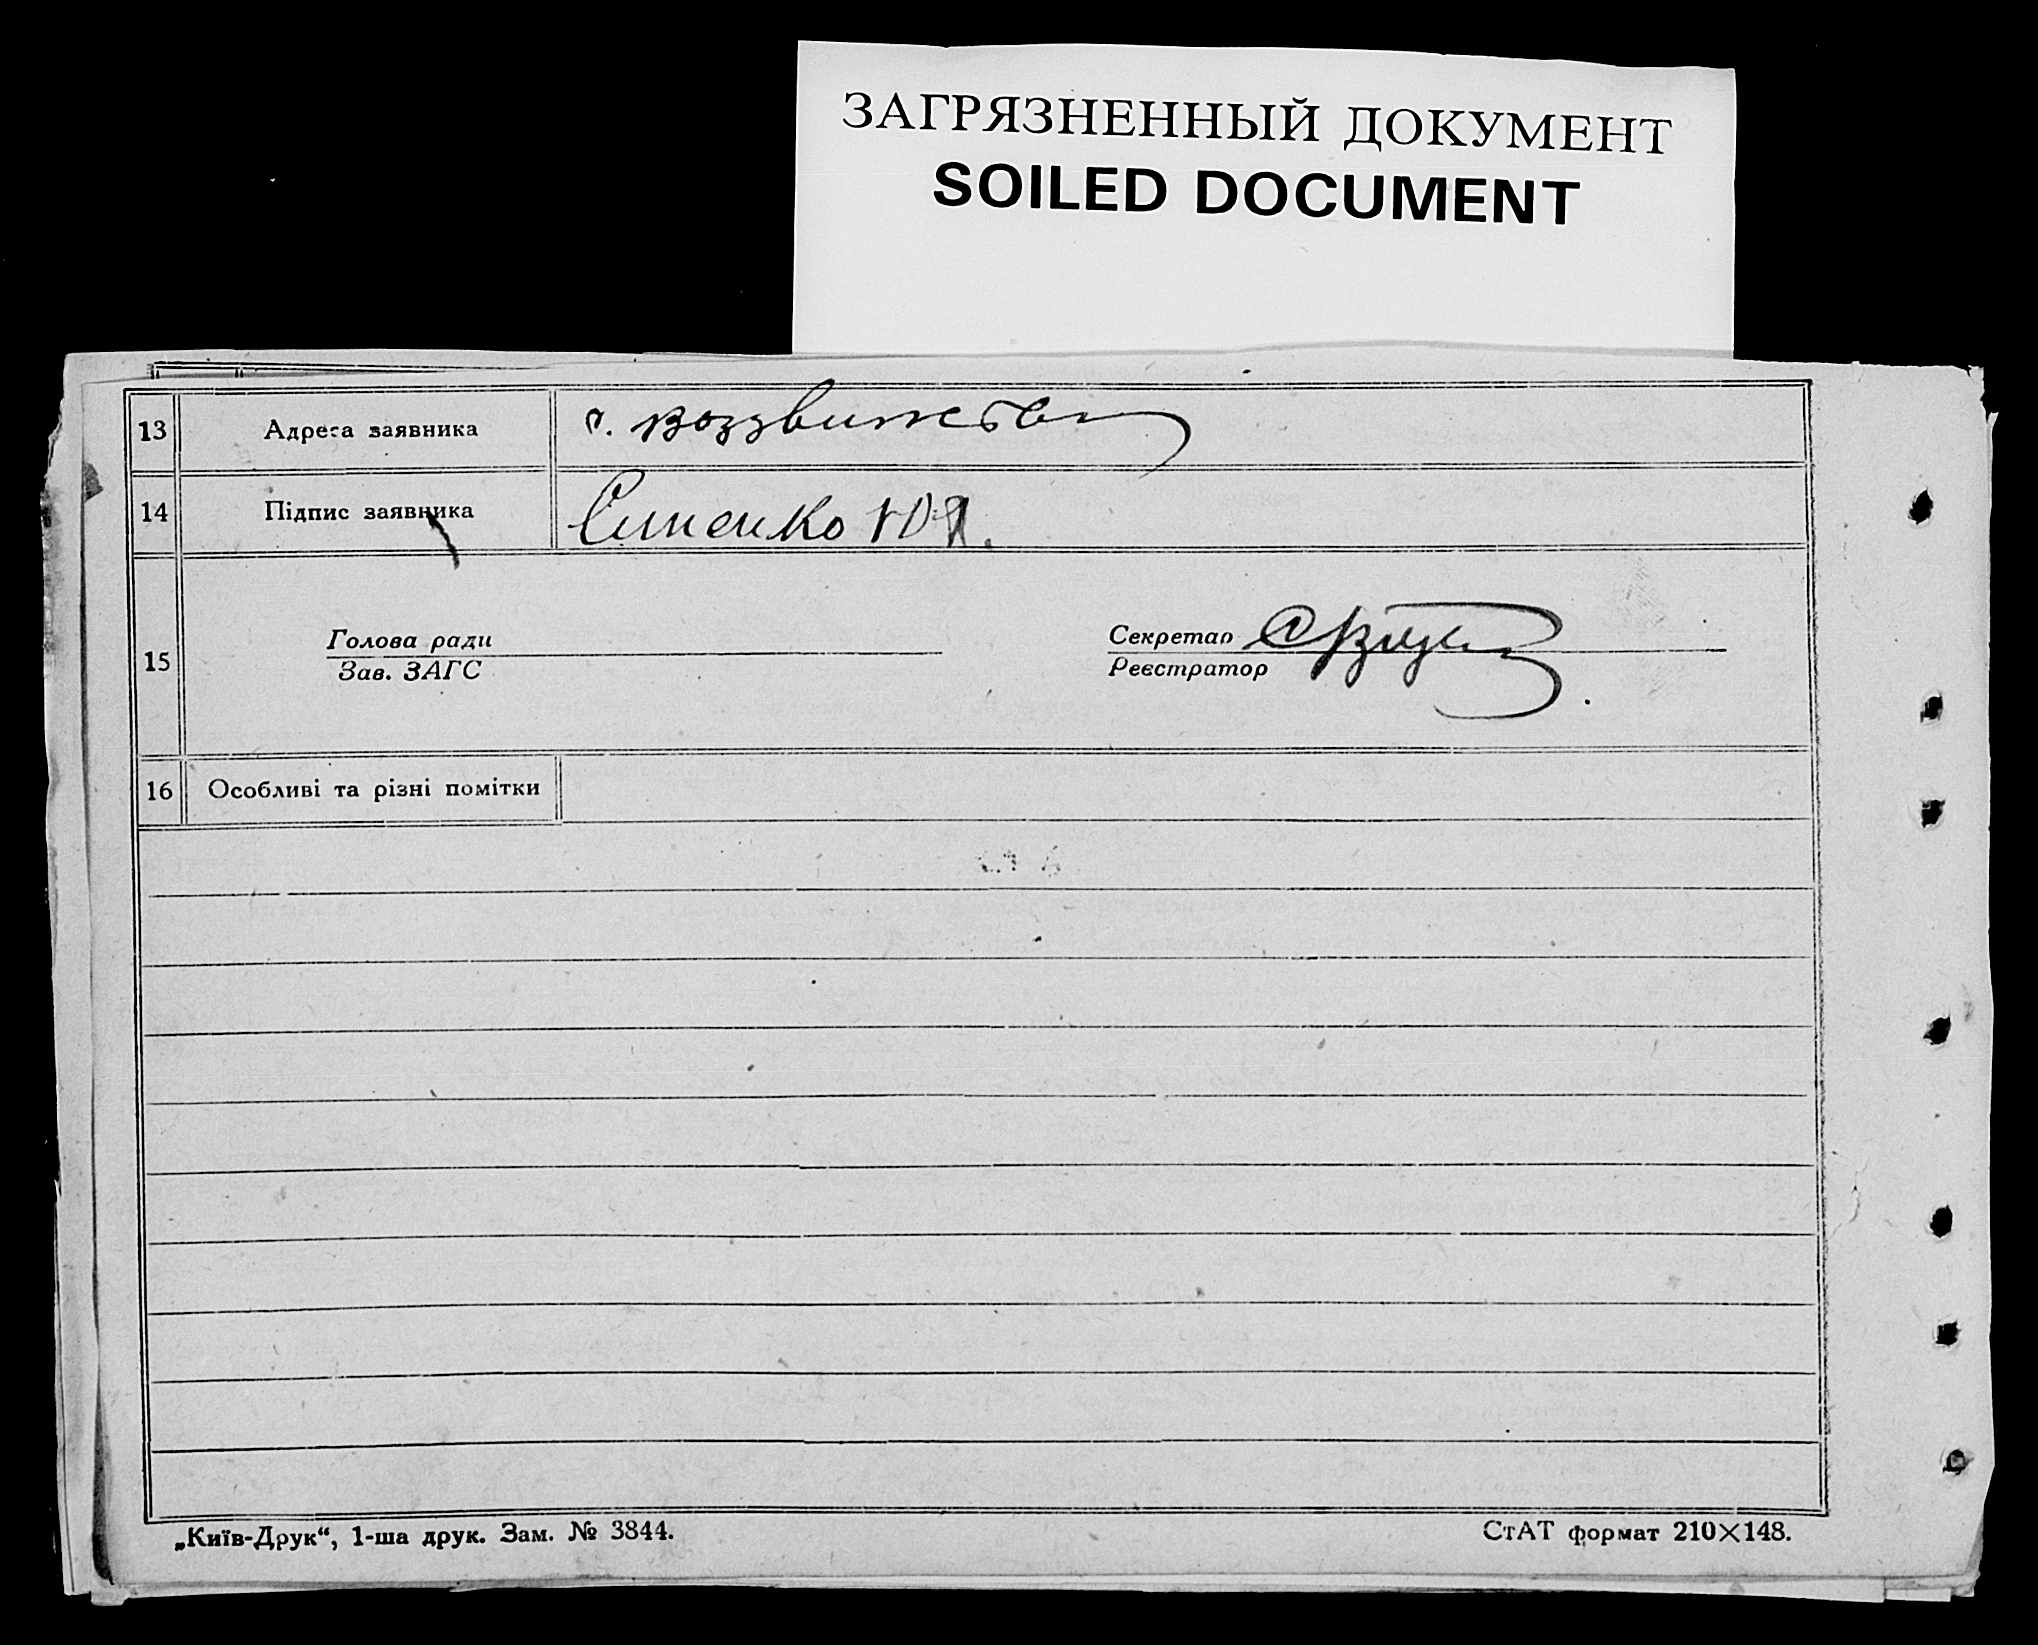 ЗАГРЯЗНЕННЫЙ ДОКУМЕНТ
SOILED DOCUMENT
13 Адреса заявника с.
14 Підпис заявника Сименко
Голова ради Секретар
15
Зав. ЗАГС Реєстратор
16 Особливі та різні помітки
„Київ-Друк“, 1-ша друк. Зам. № 3844. СтАТ формат 210×148.